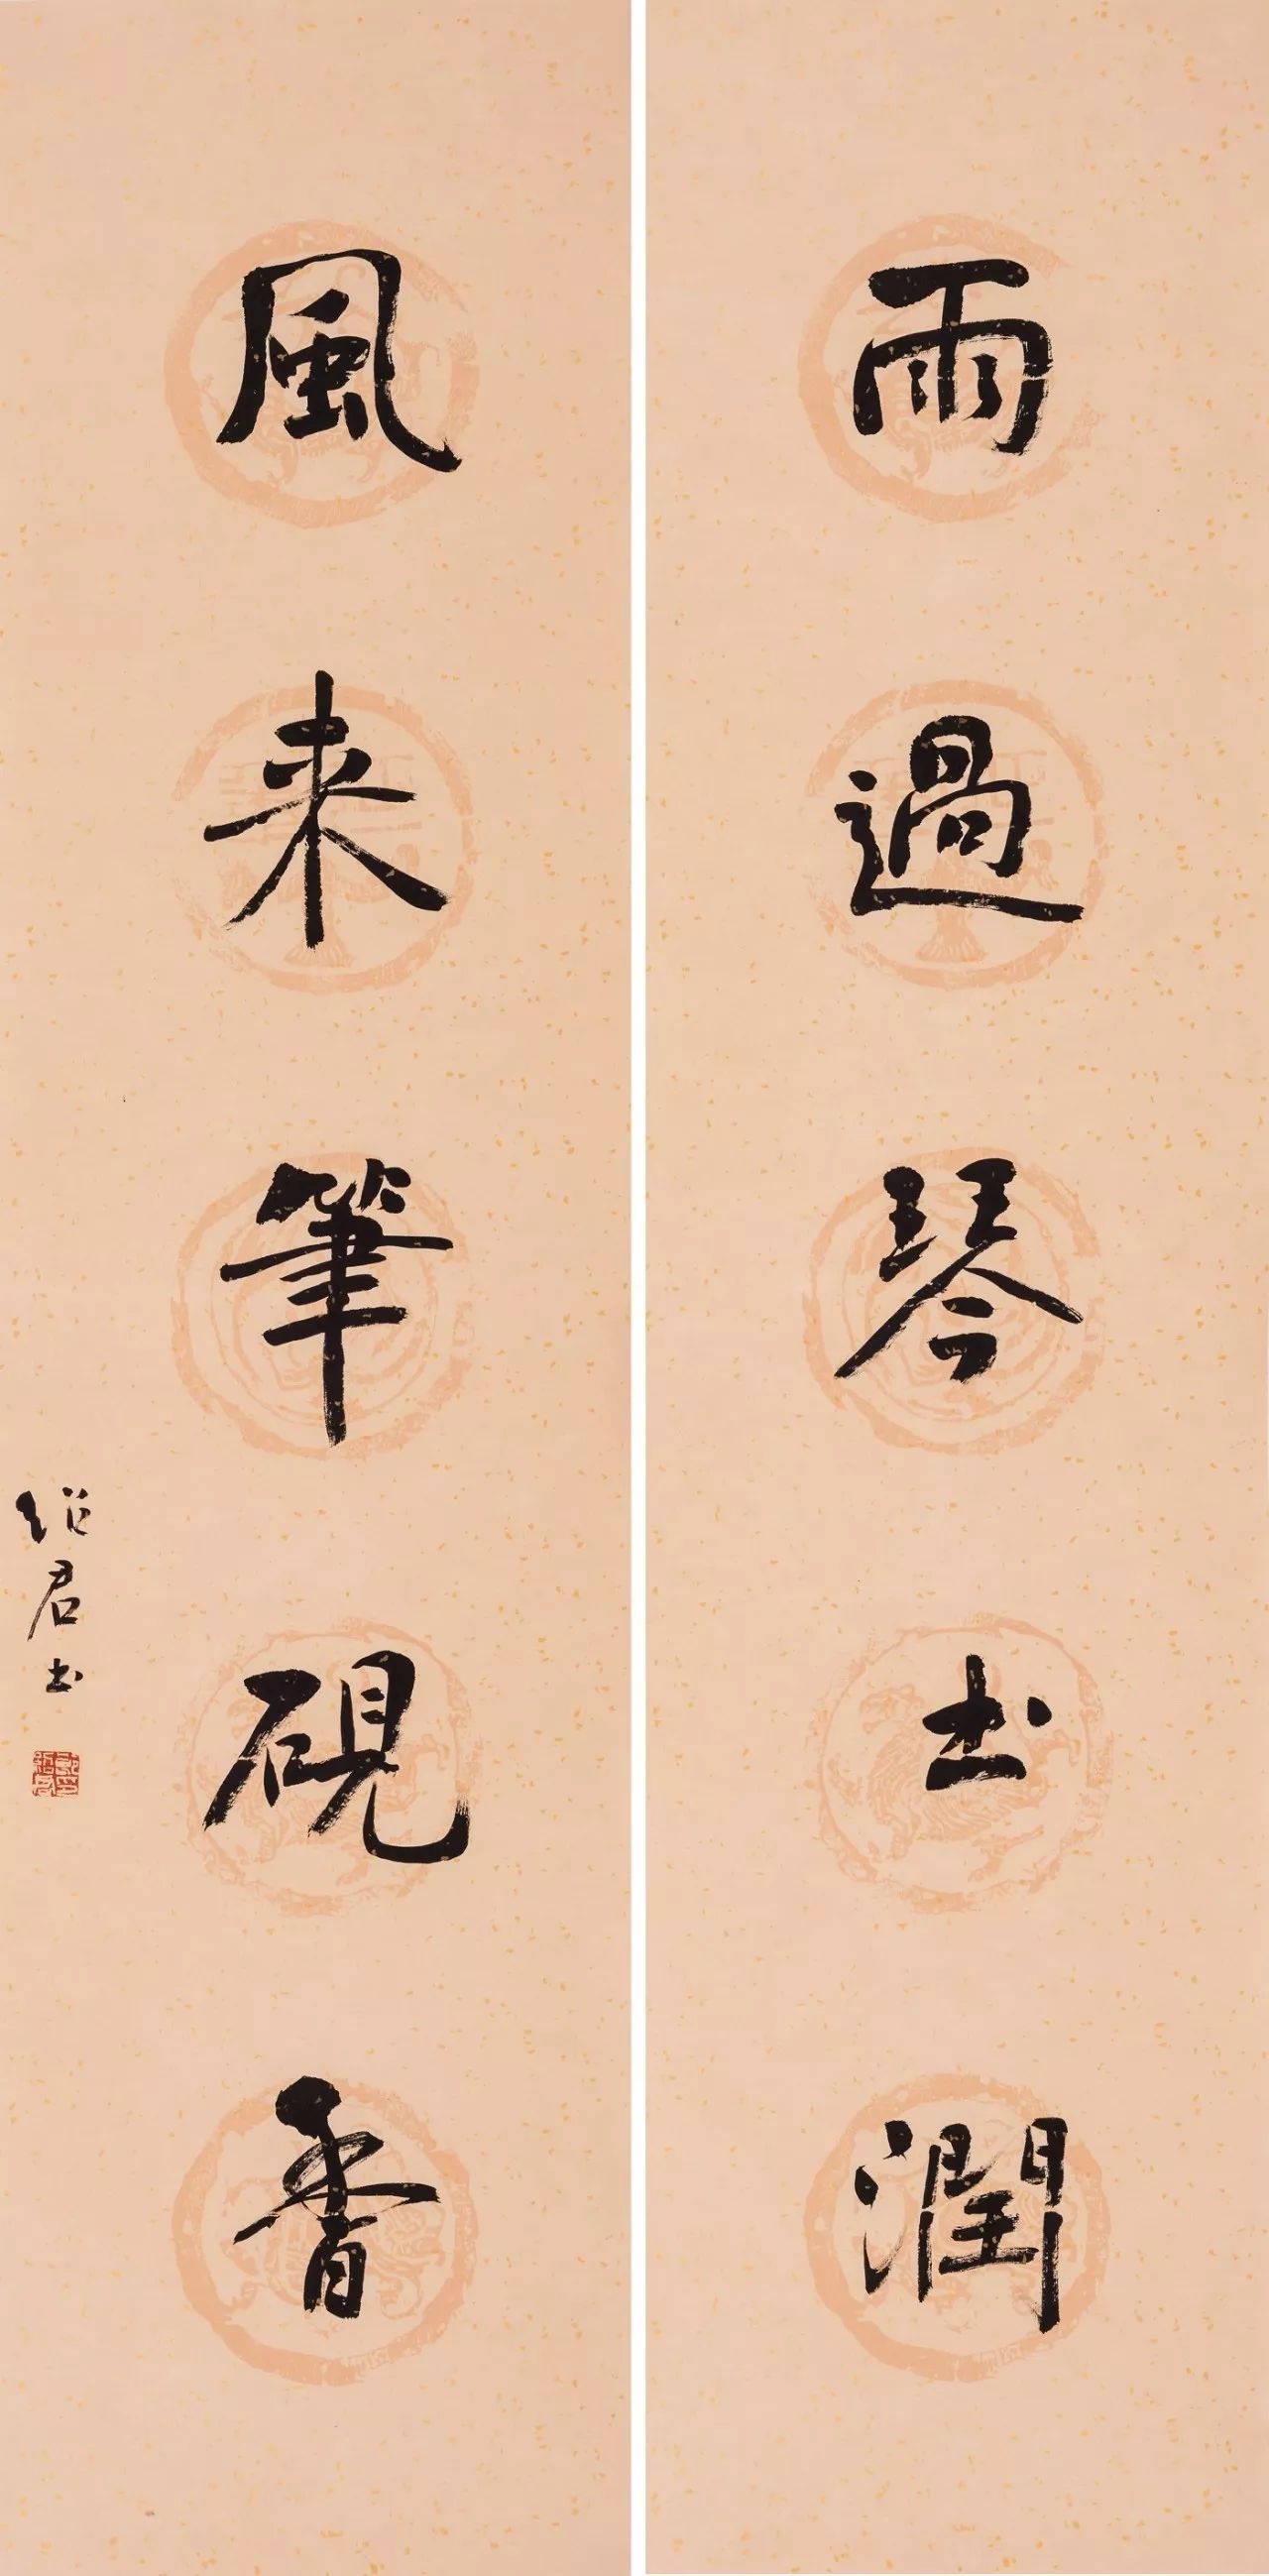 雨過琴书潤
風来筆硯香
绍君书